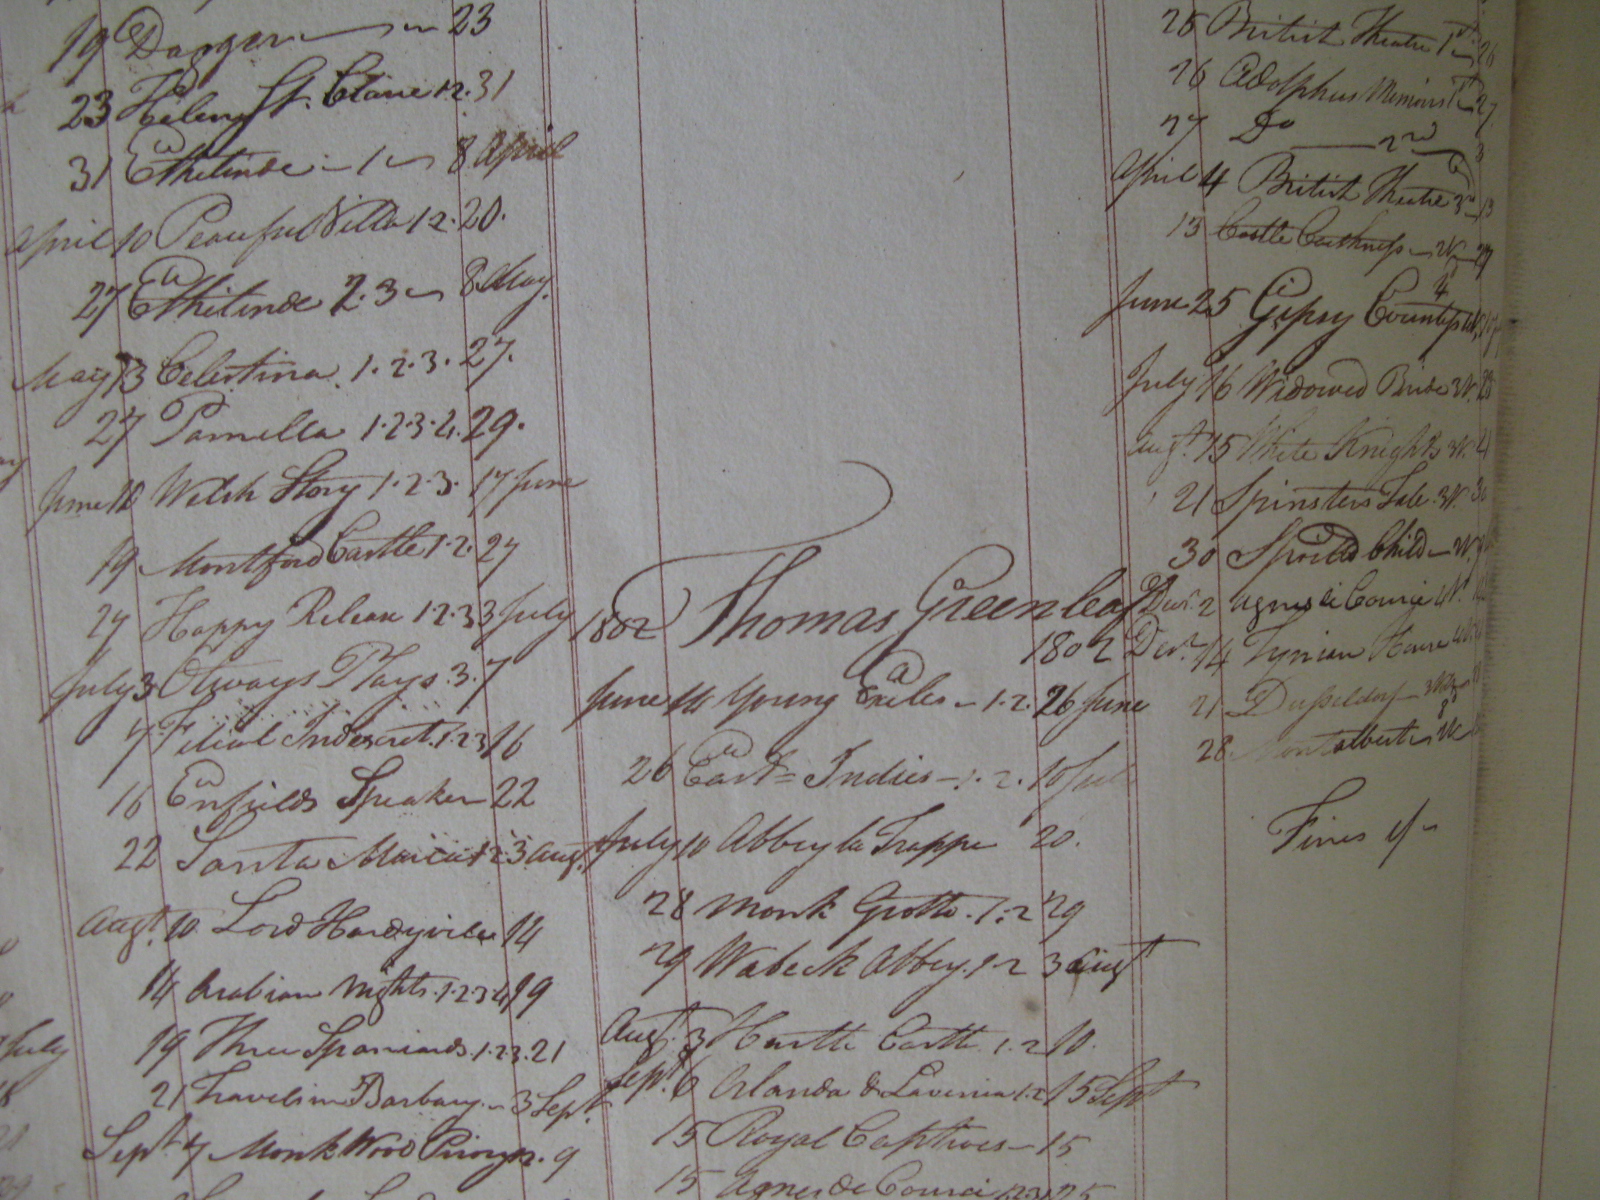 19 Danger — 23
23 Helen St. Clare 1.2. 31
31 Ethelinde - 1 - 8 April
April 10 Peaceful Villa 1 2. 20.
27 Ethelinde 2. 3 - 8 May.
May 13 Celestina. 1. 2. 3. 27.
27 Pamella 1.2.3.4. 29.
June 10 Welsh Story 1.2.3. 17 June
19 Montford Castle 1.2. 27
27 Happy Release 1 2.3 3 July
July 3 Otways Plays. 3. 7
7 Filial Indescret. 1.2 3 16
16 Enfields Speaker 22
22 Santa Maria 1 2 3 Augt
Augt. 10. Lord Hardyville 14
14 Arabian Nights. 1.2.3.4 19
19 Three Spaniards. 1.2.3. 21
21 Travels in Barbary - 3 Sept.
Sept 7 Monk Wood Priory 2. 9
1802 Thomas Greenleaf
June 14 Young Exiles - 1.2. 26 June
26 East Indies - 1. 2. 10 July
July 10 Abbey la Trappe 20.
28 Monk Grotto. 1.2 29
29 Wabeck Abbey. 1.2 3 Augt
Augt. 3 Hartle Castle 1.2 10.
Sept. 6 Orlando & Lavinia 1.2 15 Sept
15 Royal Captives - 15
15 Agnes de Courci 1.2.3 25
25 British Theatre 1st - 26
26 Adolphus Memoirs 1st 27
27 Do — 2nd 3
April 4 British Theatre 3rd 13
13 Castle Caithness - 27
June 25 Gipsy Countess 4
July 16 Widowed Bride 3 V. 28
Augt. 15 White Knights 3 V. 21
21 Spinsters Tale. 3 V. 30
30 Spoild Child -
Decr. 2 Agnes de Courcie
1802 Decr. 14 Tynian
21 Dusseldorf - 3
28 Montalbert
Fines